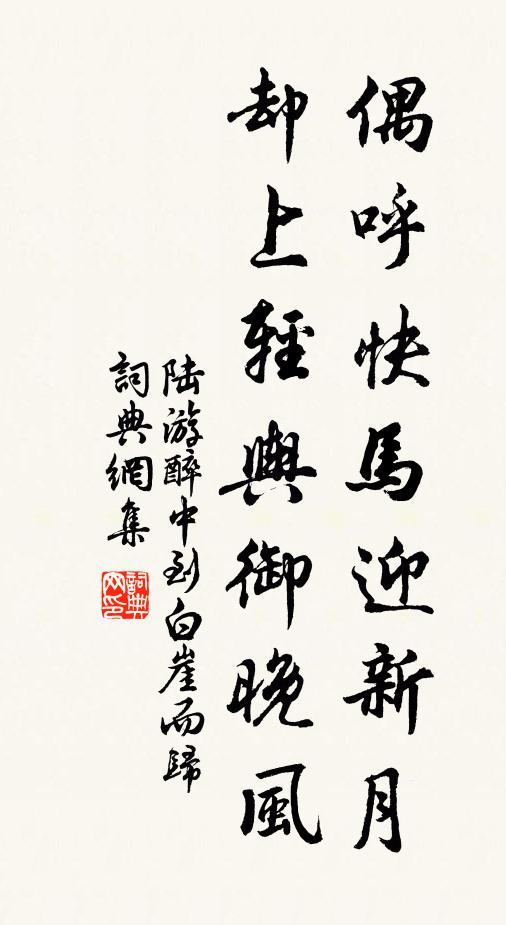 偶呼快馬迎新月
却上輕輿御晚風
陆游醉中到白崖而歸
詞典網集
詞典网印